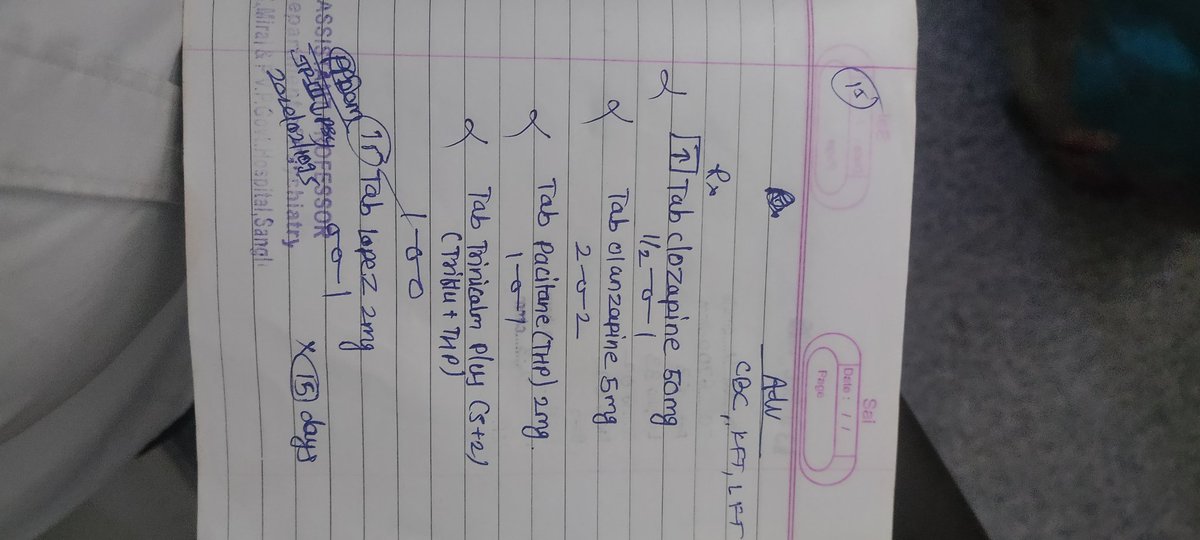 Sai
Date: / /
Page
15
Adv
CBC, KFT, LFT
Rx
↑ Tab clozapine 50mg
1/2-0-1
Tab olanzapine 5mg
2-0-2
Tab Pacitane (THP) 2mg.
1-0-
Tab Trinicalm Plus (5+2)
(Triflu + THP)
1-0-0
Tab lopez 2mg
0-0-1
x 15 days
ASSIS PROFESSOR
Depar chiatry
Miraj & Govt. Hospital, Sangli